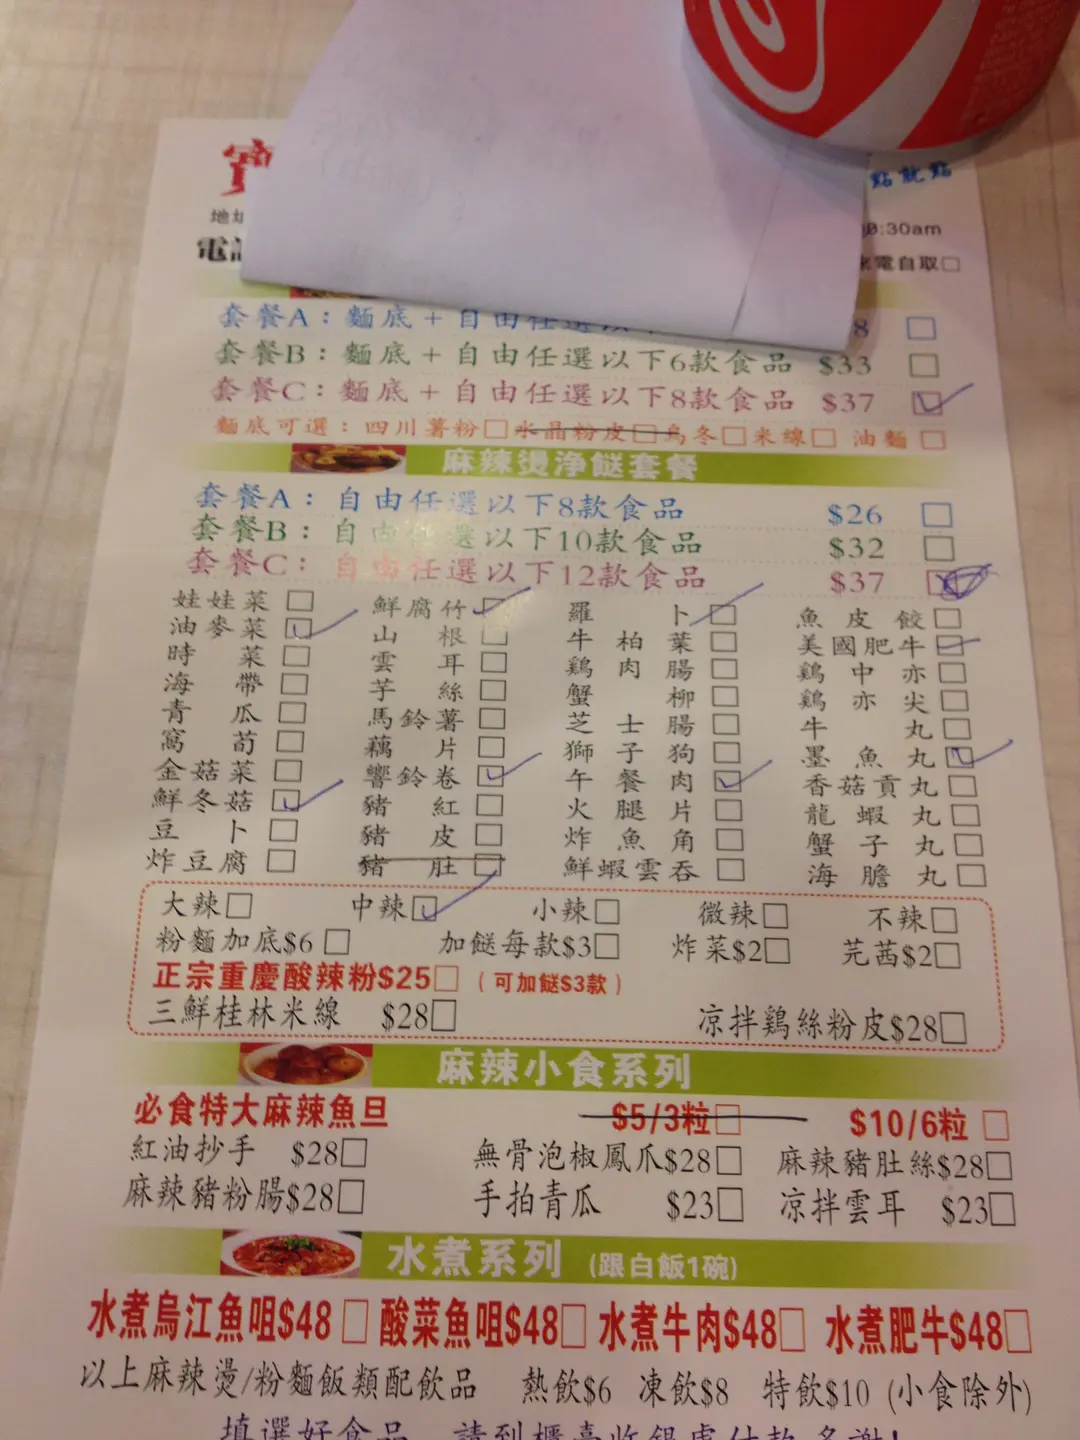 寶
點就點
地
0:30am
電
來電自取□
套餐A：麵底＋自由任選以 8 □
套餐B：麵底＋自由任選以下6款食品 $33 □
套餐C：麵底＋自由任選以下8款食品 $37 □
麵底可選：四川薯粉□水晶粉皮□烏冬□米線□ 油麵□
麻辣燙淨餸套餐
套餐A：自由任選以下8款食品 $26 □
套餐B：自由任選以下10款食品 $32 □
套餐C：自由任選以下12款食品 $37 □
娃娃菜□ 鮮腐竹□ 羅卜□ 魚皮餃□
油麥菜□ 山根□ 牛柏葉□ 美國肥牛□
時菜□ 雲耳□ 鷄肉腸□ 鷄中亦□
海帶□ 芋絲□ 蟹柳□ 鷄亦尖□
青瓜□ 馬鈴薯□ 芝士腸□ 牛丸□
窩荀□ 藕片□ 獅子狗□ 墨魚丸□
金菇菜□ 響鈴卷□ 午餐肉□ 香菇貢丸□
鮮冬菇□ 豬紅□ 火腿片□ 龍蝦丸□
豆卜□ 豬皮□ 炸魚角□ 蟹子丸□
炸豆腐□ 豬肚□ 鮮蝦雲吞□ 海膽丸□
大辣□ 中辣□ 小辣□ 微辣□ 不辣□
粉麵加底$6□ 加餸每款$3□ 炸菜$2□ 芫茜$2□
正宗重慶酸辣粉$25□（可加餸$3款）
三鮮桂林米線 $28□ 凉拌鷄絲粉皮$28□
麻辣小食系列
必食特大麻辣魚旦 $5/3粒□ $10/6粒□
紅油抄手 $28□ 無骨泡椒鳳爪$28□ 麻辣豬肚絲$28□
麻辣豬粉腸$28□ 手拍青瓜 $23□ 凉拌雲耳 $23□
水煮系列 (跟白飯1碗)
水煮烏江魚咀$48□ 酸菜魚咀$48□ 水煮牛肉$48□ 水煮肥牛$48□
以上麻辣燙/粉麵飯類配飲品 熱飲$6 凍飲$8 特飲$10 (小食除外)
填選好食品 請到櫃臺收銀處付款 多謝!